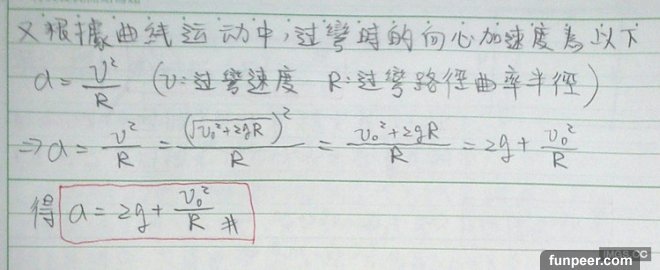 又根據曲线运动中,过彎時的向心加速度為以下
a = v²/R (v:过彎速度 R:过彎路徑曲率半徑)
⇒ a = v²/R = (√(v₀²+2gR))²/R = (v₀²+2gR)/R = 2g + v₀²/R
得 a = 2g + v₀²/R #
funpeer.com